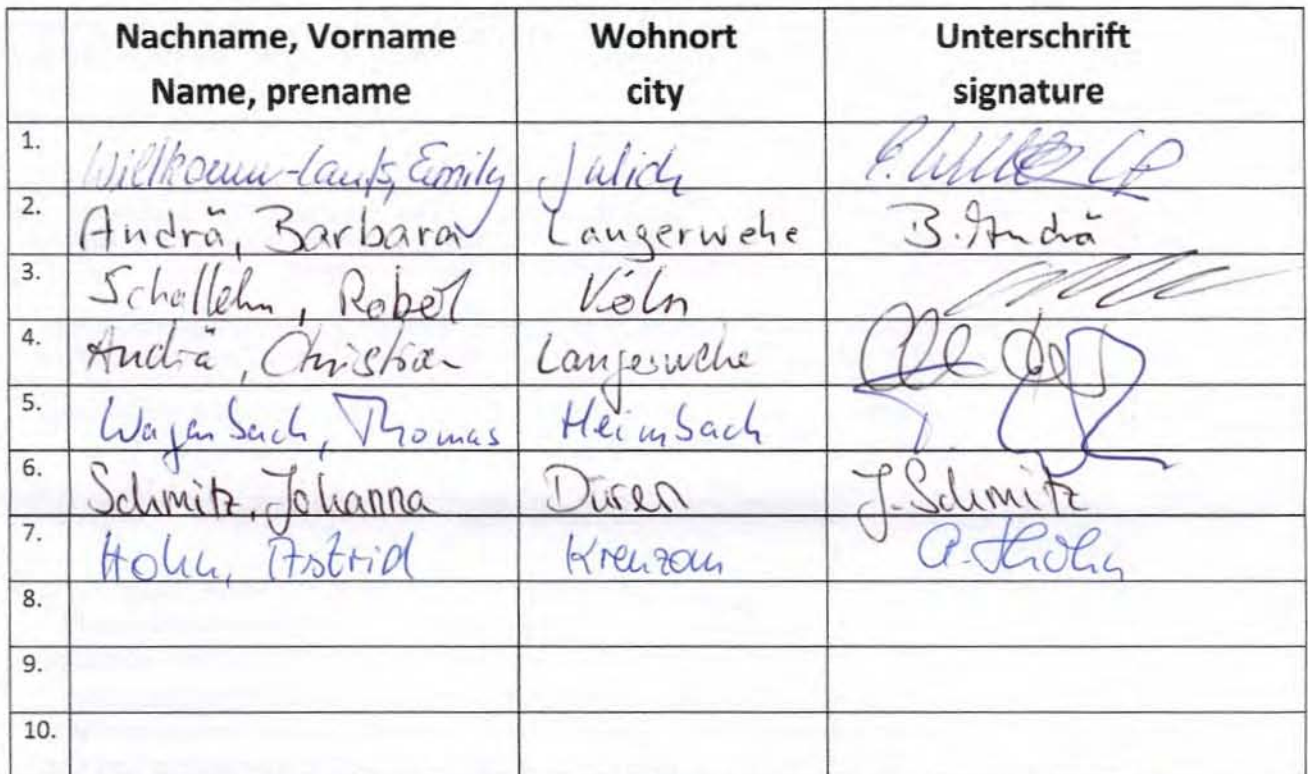 Nachname, Vorname Wohnort Unterschrift
Name, prename city signature
1. Willkomm-Laufs, Emily Jülich
2. Andrä, Barbara Langerwehe B. Andrä
3. Schallehn, Robert Köln
4. Andrä, Christian Langerwehe
5. Wagenbach, Thomas Heimbach
6. Schmitz, Johanna Düren J. Schmitz
7. Hohn, Astrid Kreuzau A. Hohn
8.
9.
10.